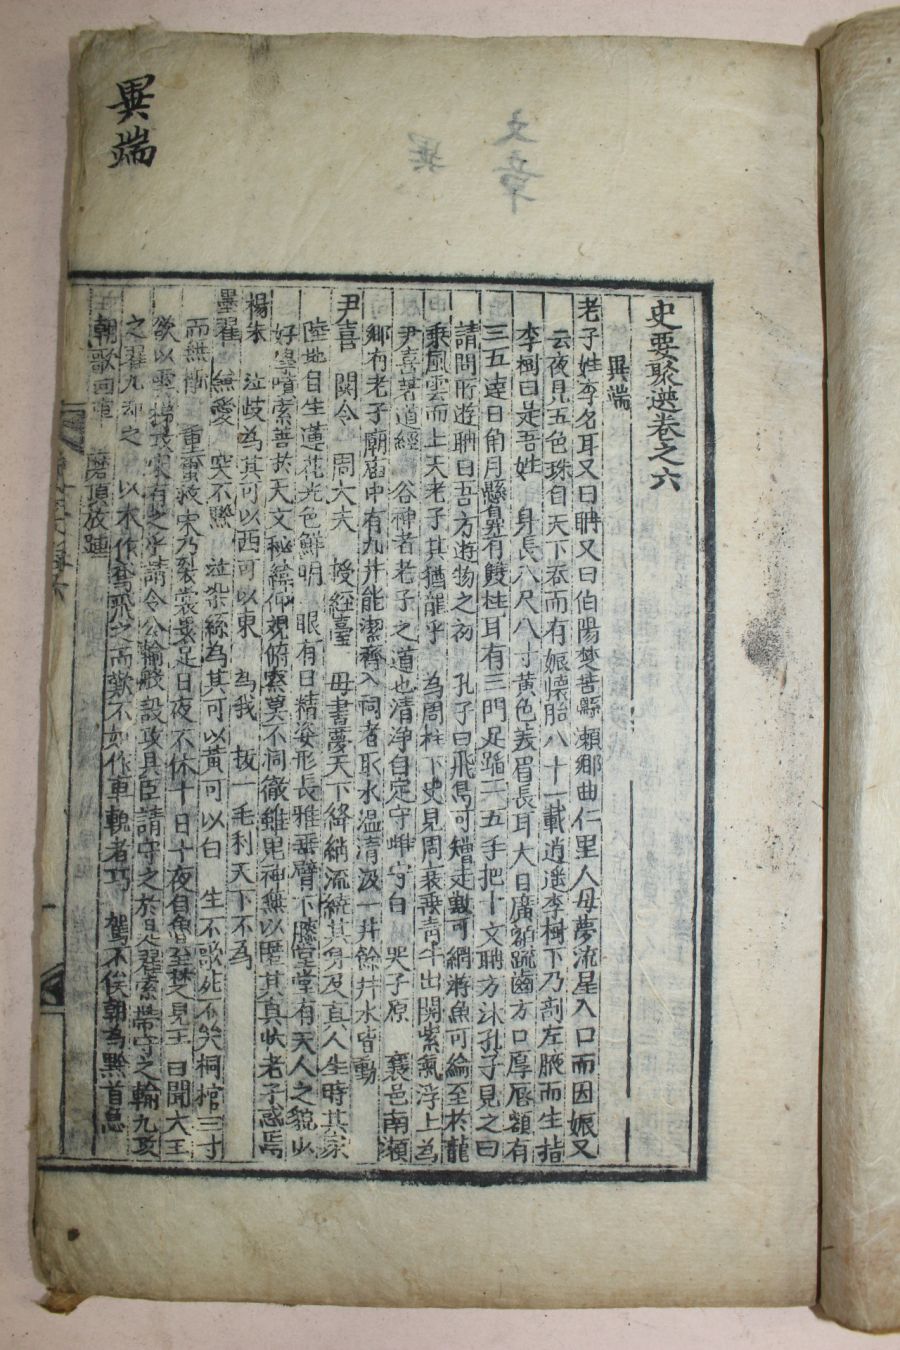 異端
史要聚選卷之六
異端
老子姓李名耳又曰聃又曰伯陽楚苦縣瀨鄉曲仁里人母夢流星入口而因娠又
云夜見五色珠自天下呑而有娠懷胎八十一載逍遙李樹下乃剖左腋而生指
李樹曰是吾姓 身長八尺八寸黃色美眉長耳大目廣額疏齒方口厚唇額有
三五達日角月懸鼻有雙柱耳有三門足蹈二五手把十文聃方沐孔子見之曰
請問所遊聃曰吾方遊物之初 孔子曰飛鳥可矰走獸可網游魚可綸至於龍
乘風雲而上天老子其猶龍乎 爲周柱下史見周衰乘靑牛出關紫氣浮上爲
尹喜著道經 谷神者老子之道也淸淨自定守雌守白 老子原 襄邑南瀨
鄕有老子廟庙中有九井能潔齋入祠者取水溫淸汲一井餘井水皆動
尹喜 關令 周大夫 授經臺 母晝夢天下絳綃流繞其身及眞人生時其家
陸地自生蓮花光色鮮明 眼有日精姿形長雅垂臂下膝堂堂有天人之貌以
好學墳索善於天文秘緯仰視俯察莫不洞徹雖鬼神無以匿其眞狀老子惑焉
楊朱 泣歧爲其可以西可以東 爲我 拔一毛利天下不爲
墨翟 兼愛 突不黔 泣染絲爲其可以黃可以白 生不歌死不哭桐棺三寸
而無槨 重繭救宋乃裂裳裹足日夜不休十日十夜自魯至楚見王 曰聞大王
欲以 攻宋有之乎請令公輸般設攻具臣請守之於是翟索帶守之輸九攻
之翟九却之 以木作鳶飛之而歎不如作車輗者巧 駕不俟朝爲黔首急
朝歌回車 磨頂放踵